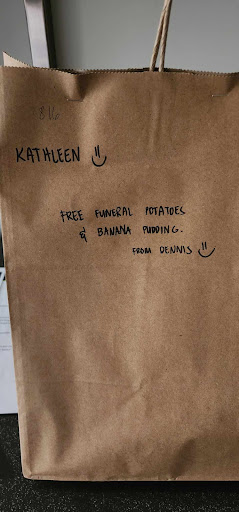 KATHLEEN
FREE FUNERAL POTATOES
& BANANA PUDDING.
FROM DENNIS